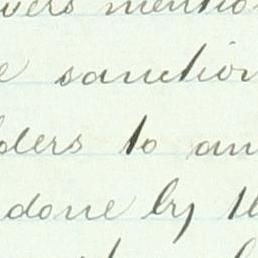 vers mention
e sanction
lders to an
done by th